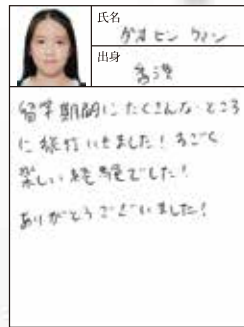 氏名
出身
香港
留学期間にたくさんなところ
に旅行いきました！すごく
楽しい経験でした！
ありがとうございました！